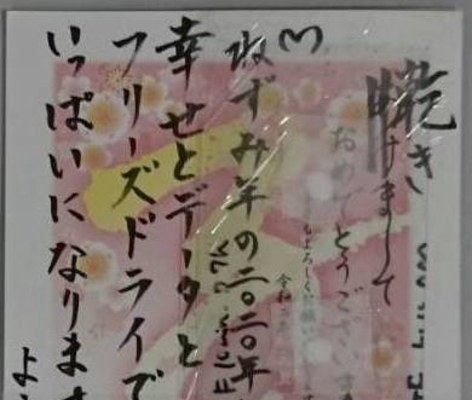 けまして
おめでとうございま
もよろしくお願い
令和
ねずみ年の二〇二〇年
幸せとデータと
フリーズドライで
いっぱいになります
よ